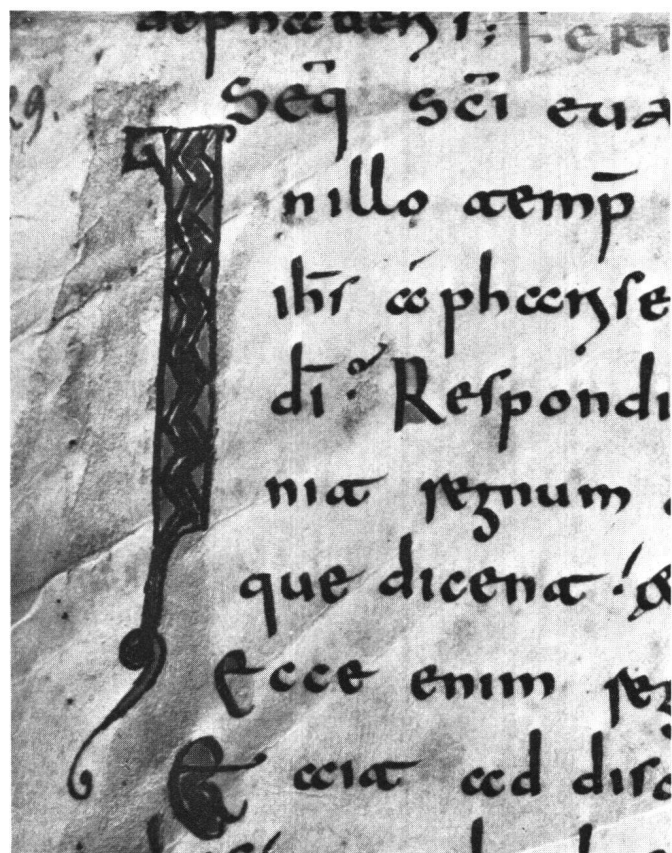 Feri
29.
Seq̄ sc̄i eua
Inillo temp̄
ihs̄ a pharise
dī. Respondi
nit regnum
que dicent.
Ecce enim reg
Et ait ad disc